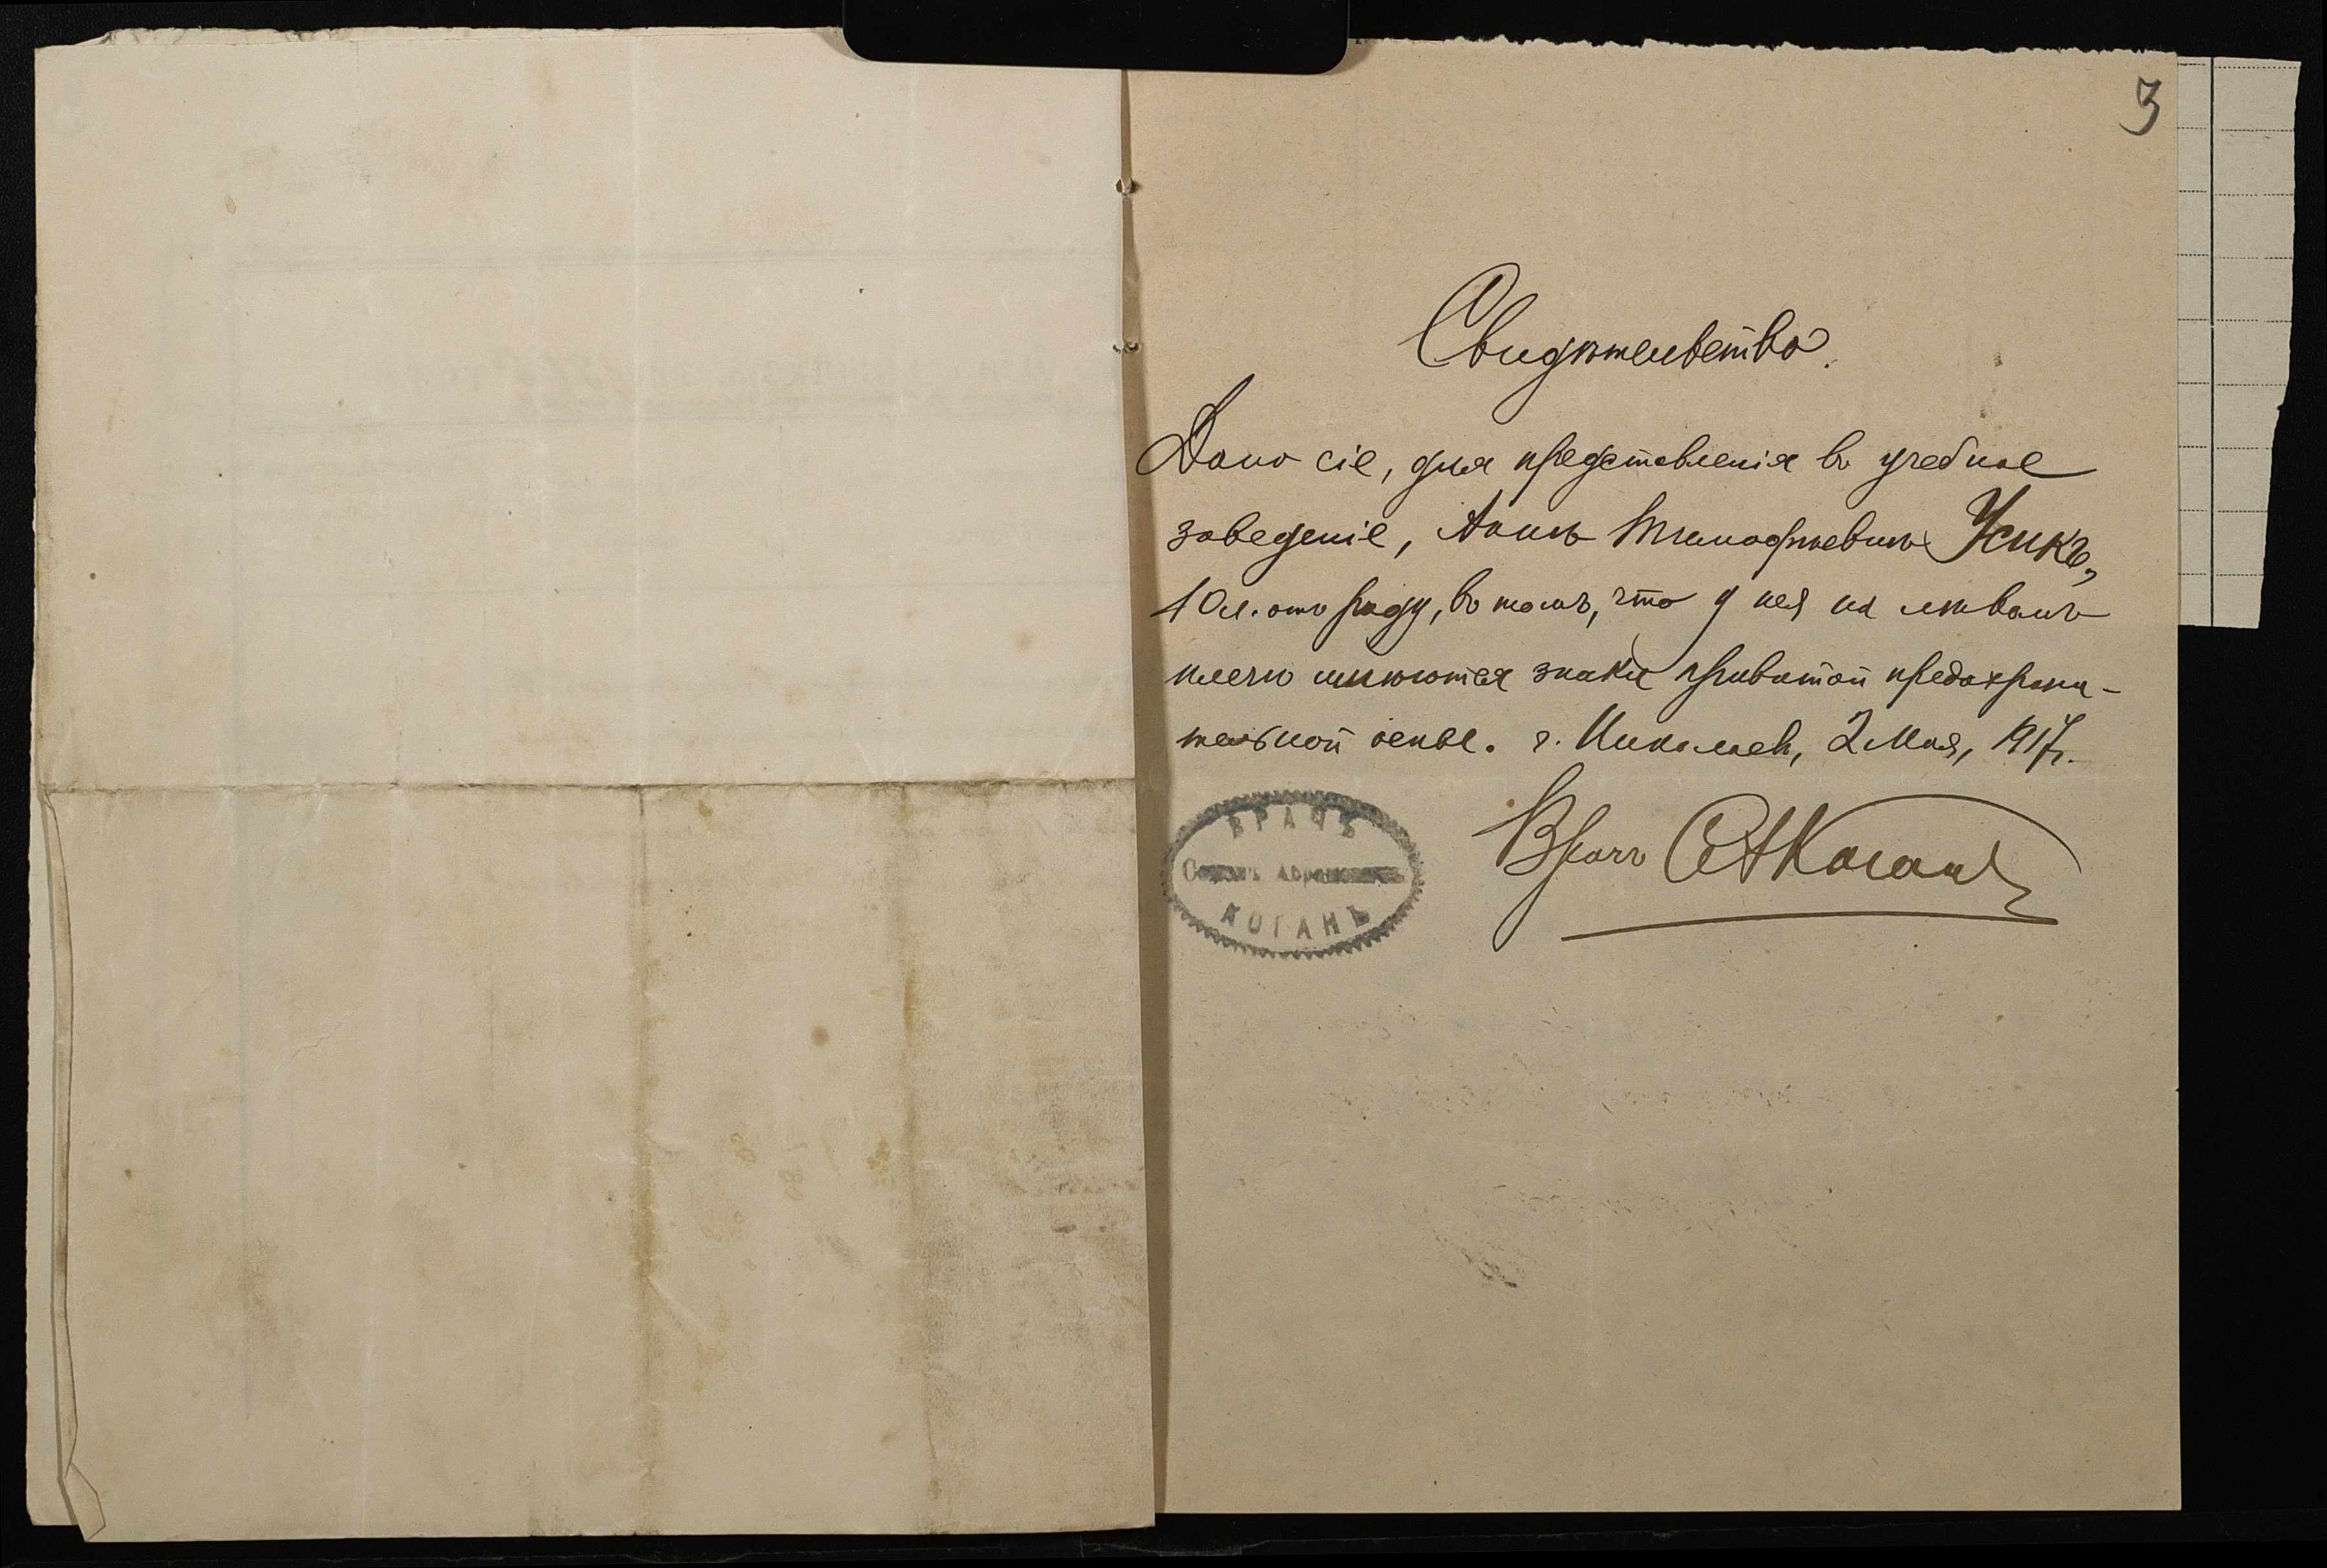 3
Свидѣтельство.
Дано сіе, для представленія въ учебное
заведеніе, Аннѣ Тимофѣевнѣ Усикъ,
10 л. отъ роду, въ томъ, что у нея на лѣвомъ
плечѣ имѣются знаки привитой предохрани-
тельной оспы. г. Николаевъ, 2 Мая, 1917 г.
Врачъ САКоганъ
ВРАЧЪ
КОГАНЪ